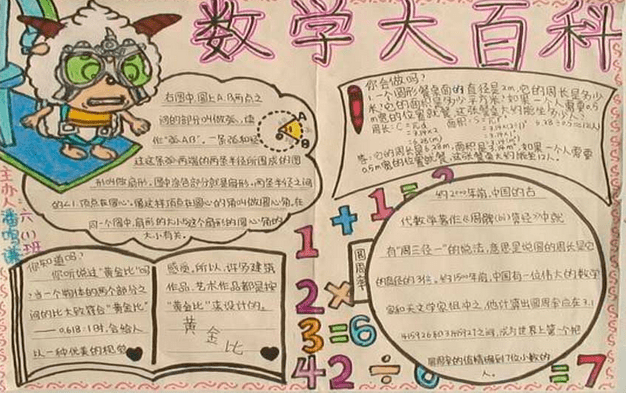 数学大百科
右图中,圆上A、B两点之
间的部分叫做弧,读
作"弧AB",一条弧和经
过这条弧两端的两条半径所围成的图
形叫做扇形,图中涂色部分就是扇形,两条半径之间
的∠1,顶点在圆心,像这样顶点在圆心的角叫做圆心角,在
同一个圆中,扇形的大小与这个扇形的圆心角的
大小有关。
A
B
你会做吗?
一个圆形餐桌面的直径是2m,它的周长是多少
米?它的面积是多少平方米?如果一个人需要0.5
m宽的位置就餐,这张餐桌大约能坐多少人?
答:它的周长是6.28m,面积是3.14m²,如果一个人需要
0.5m宽的位置就餐,这张餐桌大约能坐12人。
主办人:六(1)班
你知道吗?
你听说过"黄金比"吗
?当一个物体的两个部分之
间的比大致符合"黄金比"
——0.618:1时,会给人
以一种优美的视觉
感受,所以,许多建筑
作品、艺术作品都是按
"黄金比"来设计的。
黄金比
1+1=2
2×
3=6
42÷6=7
圆周率
约2000年前,中国的古
代数学著作《周髀算经》中就
有"周三径一"的说法,意思是说圆的周长是它
的直径的3倍。约1500年前,中国有一位伟大的数学
家和天文学家祖冲之,他计算出圆周率应在3.1
415926和3.1415927之间,成为世界上第一个把
圆周率的值精确到7位小数的
人。